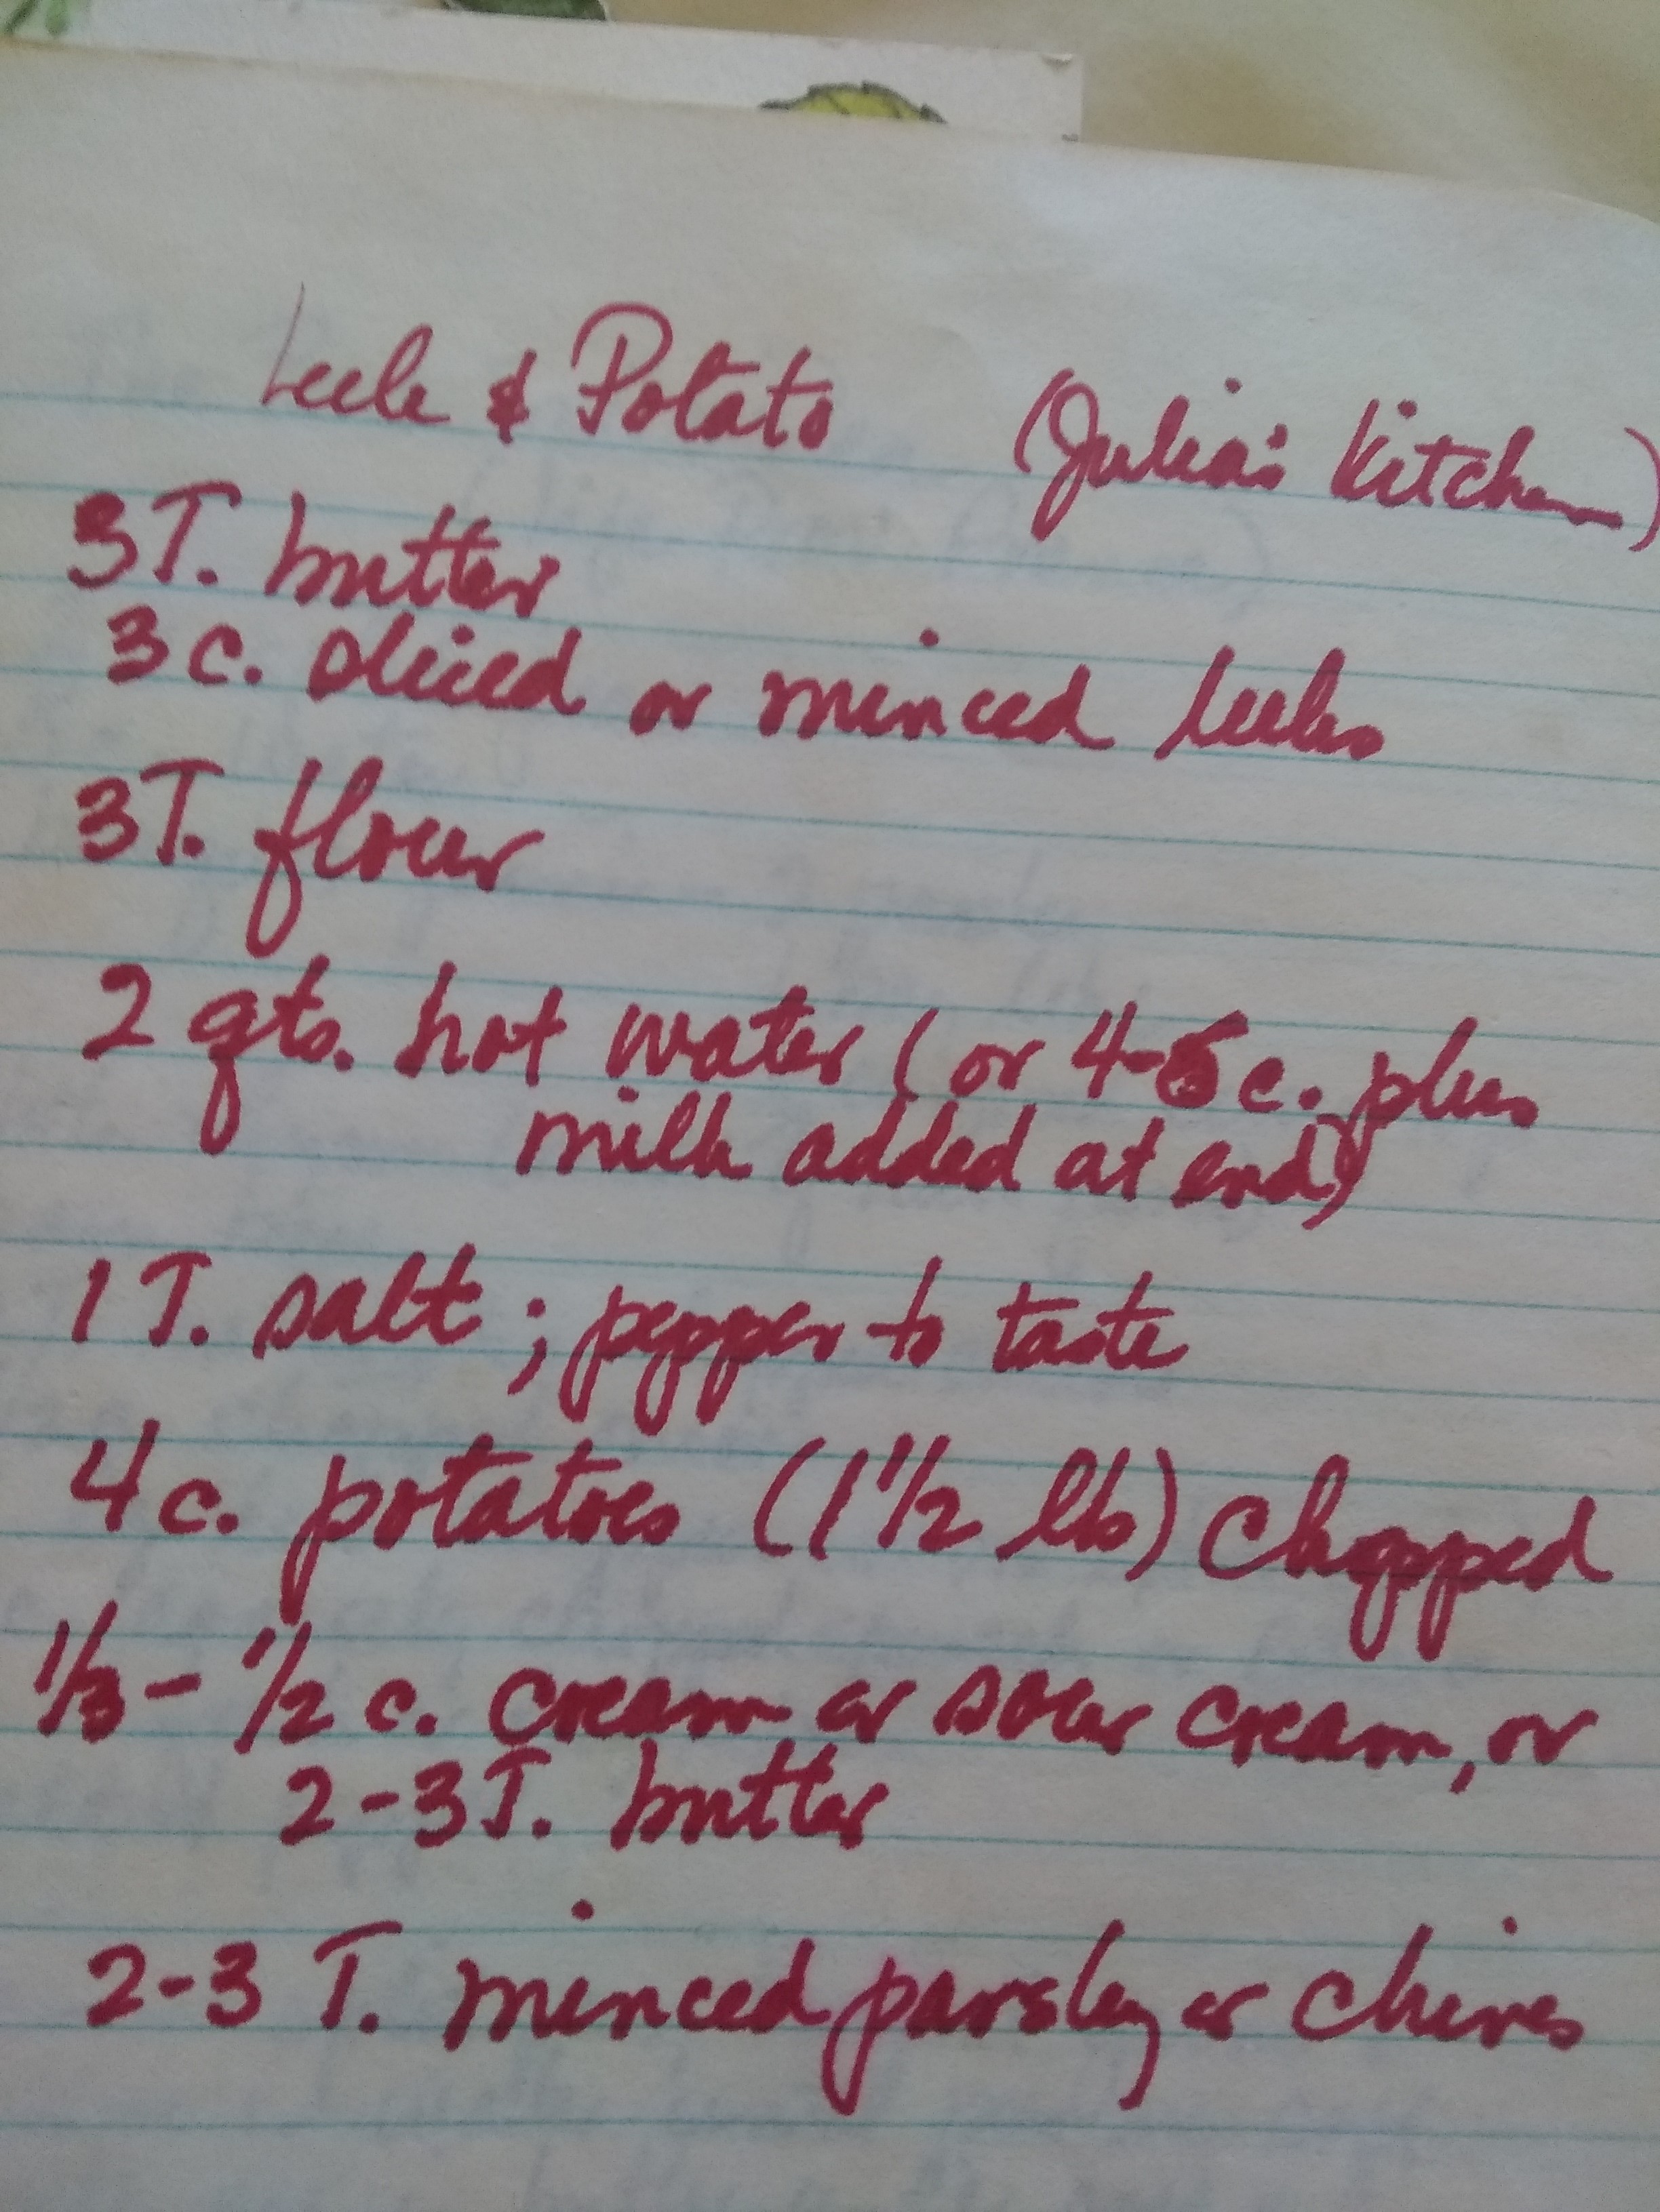 Leek & Potato (Julia's Kitchen)
3T. butter
3 c. sliced or minced leeks
3T. flour
2 qts. hot water (or 4-5 c. plus
milk added at end)
1 T. salt; pepper to taste
4 c. potatoes (1 1/2 lb) chopped
1/3 - 1/2 c. cream or sour cream, or
2-3 T. butter
2-3 T. minced parsley or chives